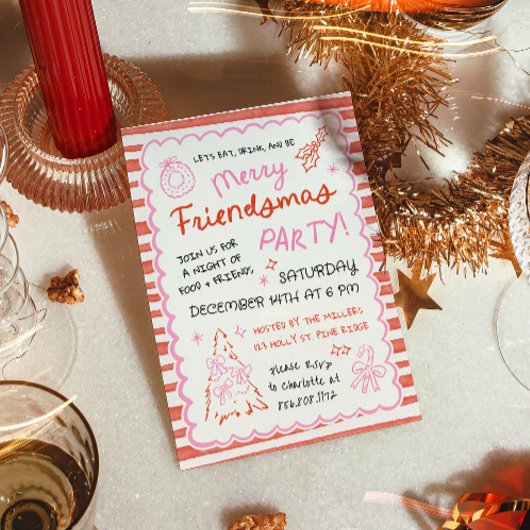 LET'S EAT, DRINK, AND BE
Merry
Friendsmas
PARTY!
JOIN US FOR
A NIGHT OF
FOOD + FRIENDS,
SATURDAY
DECEMBER 14TH AT 6 PM
HOSTED BY THE MILLERS
123 HOLLY ST. PINE RIDGE
please RSVP
to charlotte at
856.808.1172